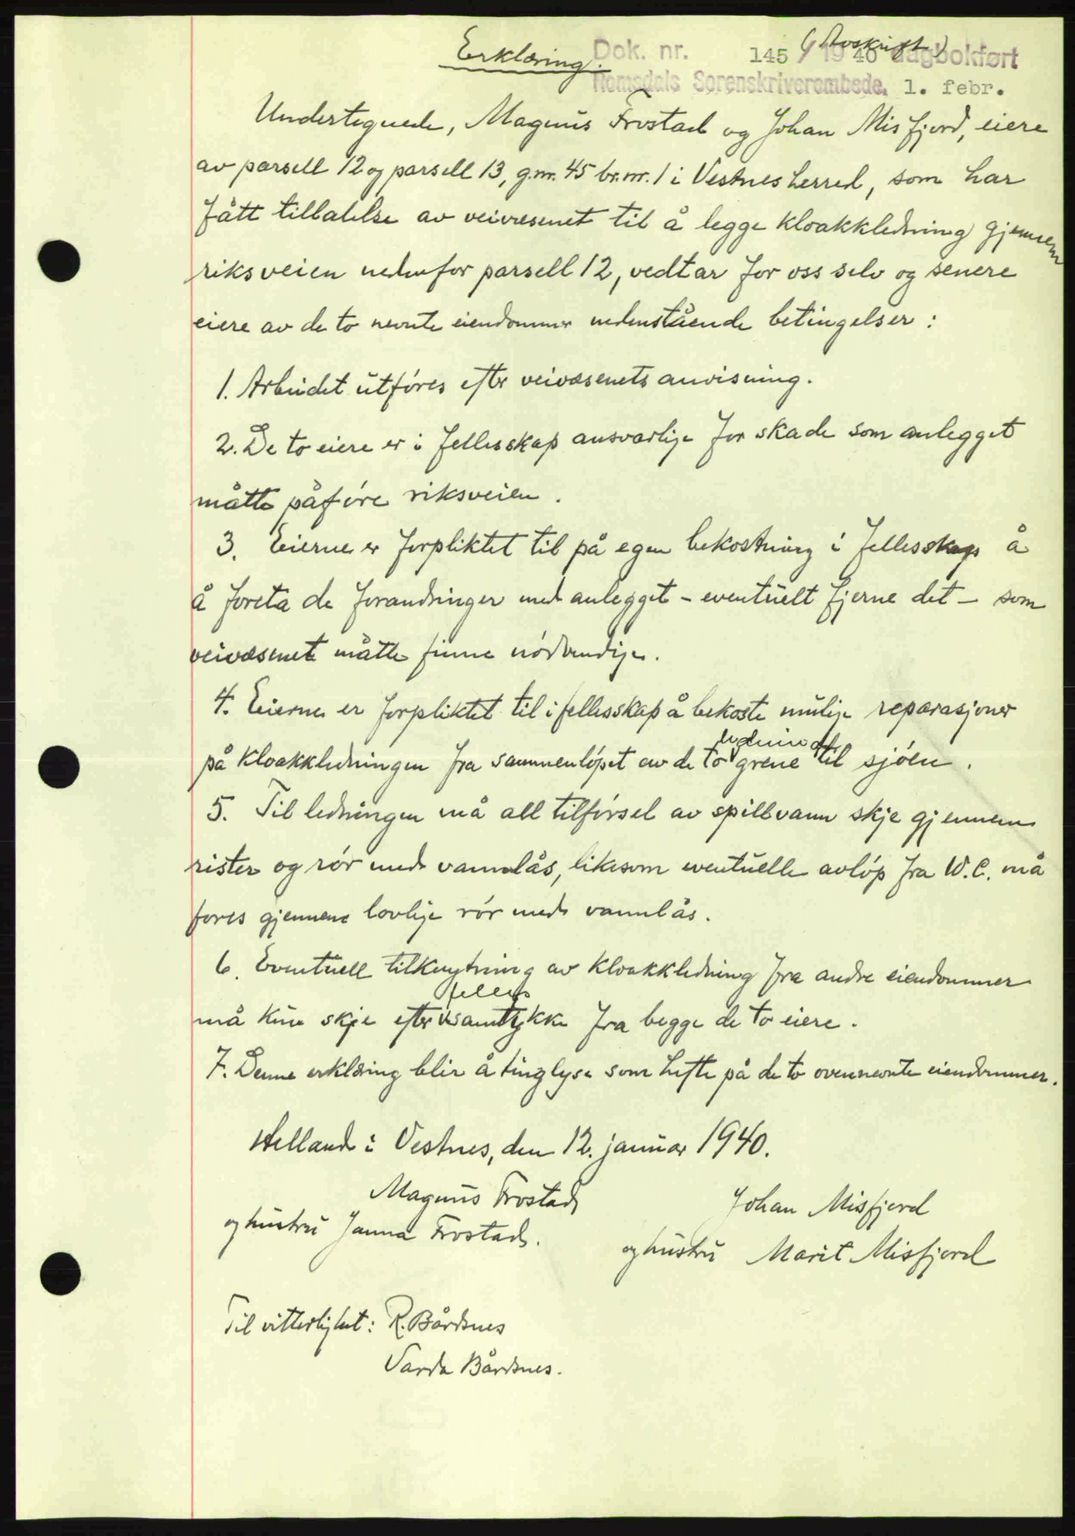 Erklæring. (Avskrift)
Dok. nr. 145 / 1940 dagbokført
Romsdals Sorenskriverembede. 1. febr.
Undertegnede, Magnus Frostad og Johan Misfjord, eiere
av parsell 12 og parsell 13, g.nr. 45 br.nr. 1 i Vestnes herred, som har
fått tillatelse av veivæsenet til å legge kloakkledning gjennem
riksveien nedenfor parsell 12, vedtar for oss selv og senere
eiere av de to nevnte eiendommer nedenstående betingelser:
1. Arbeidet utføres efter veivæsenets anvisning.
2. De to eiere er i fellesskap ansvarlige for skade som anlegget
måtte påføre riksveien.
3. Eierne er forpliktet til på egen bekostning i fellesskap å
å foreta de forandringer med anlegget - eventuelt fjerne det - som
veivæsenet måtte finne nødvendige.
4. Eierne er forpliktet til i fellesskap å bekoste mulige reparasjoner
på kloakkledningen fra sammenløpet av de to grene til sjøen.
5. Til ledningen må all tilførsel av spillvann skje gjennem
rister og rør med vannlås, likesom eventuelle avløp fra W.C. må
føres gjennem lovlige rør med vannlås.
6. Eventuell tilknytning av kloakkledning fra andre eiendommer
felles
må kun skje efter samtykke fra begge de to eiere.
7. Denne erklæring blir å tinglyse som hefte på de to ovennevnte eiendommer.
Helland i Vestnes, den 12. januar 1940.
Magnus Frostad Johan Misfjord
og hustru Janna Frostad. og hustru Marit Misfjord
Til vitterlighet: R. Bårdsnes
Varda Bårdsnes.